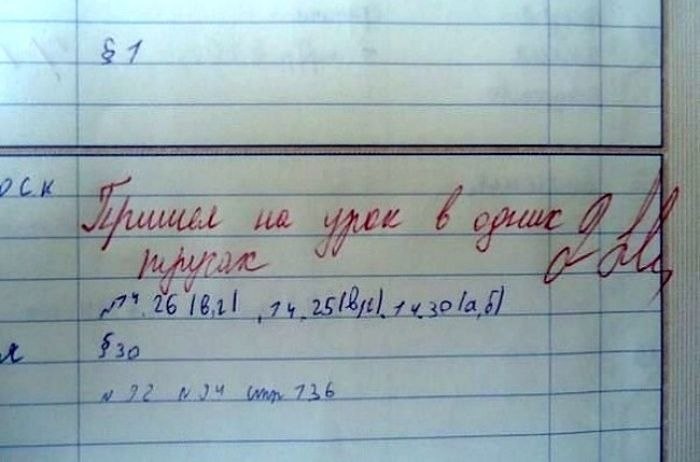 § 1
оск
Пришел на урок в одних
трусах
№ 14. 26 (в,г), 14. 25(в,г), 14. 30(а,б)
я § 30
№ 92 № 94 стр 136